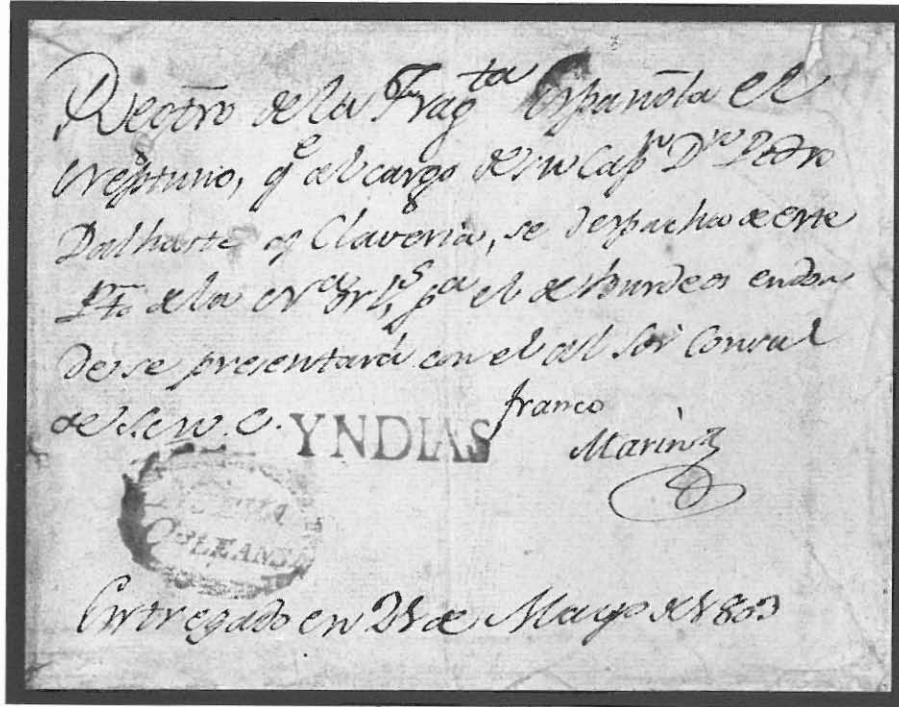 Regtro de la Fragta Española el
Neptuno, qe al cargo de su Capn Dn Pedro
Dalhaste y Claveria, se despacha de este
Pto de la Na Orls pa el de Burdeos en don
de se presentará con el al Sor Consul
de S. M. C.
YNDIAS
franco
Marin
NUEVA
ORLEANS
Entregado en 28 de Mayo de 1803